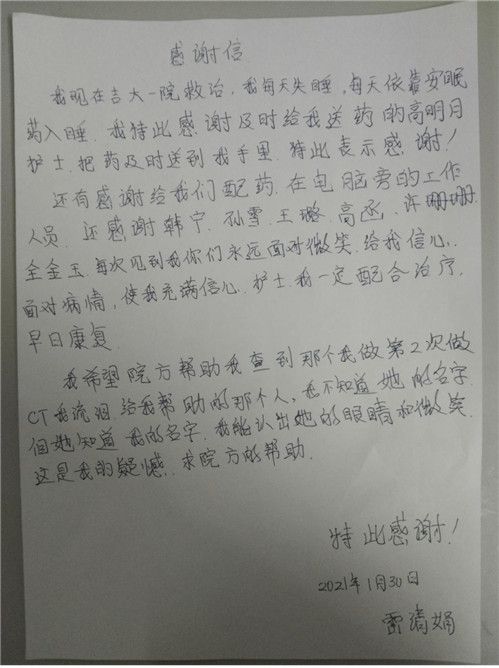 感谢信
我现在吉大一院救治,我每天失睡,每天依靠安眠
药入睡.我特此感谢及时给我送药的高明月
护士.把药及时送到我手里.特此表示感谢!
还有感谢给我们配药.在电脑旁的工作
人员.还感谢韩宁.孙雪.王璐.高丞.许珊珊.
全金玉.每次见到我你们永远面对微笑.给我信心.
面对病情,使我充满信心.护士.我一定配合治疗.
早日康复.
我希望院方帮助我查到那个我做第2次做
CT我流泪.给我帮助的那个人,我不知道她的名字
但她知道我的名字.我能认出她的眼睛和微笑.
这是我的疑憾.求院方的帮助.
特此感谢!
2021年1月30日
雷清娟